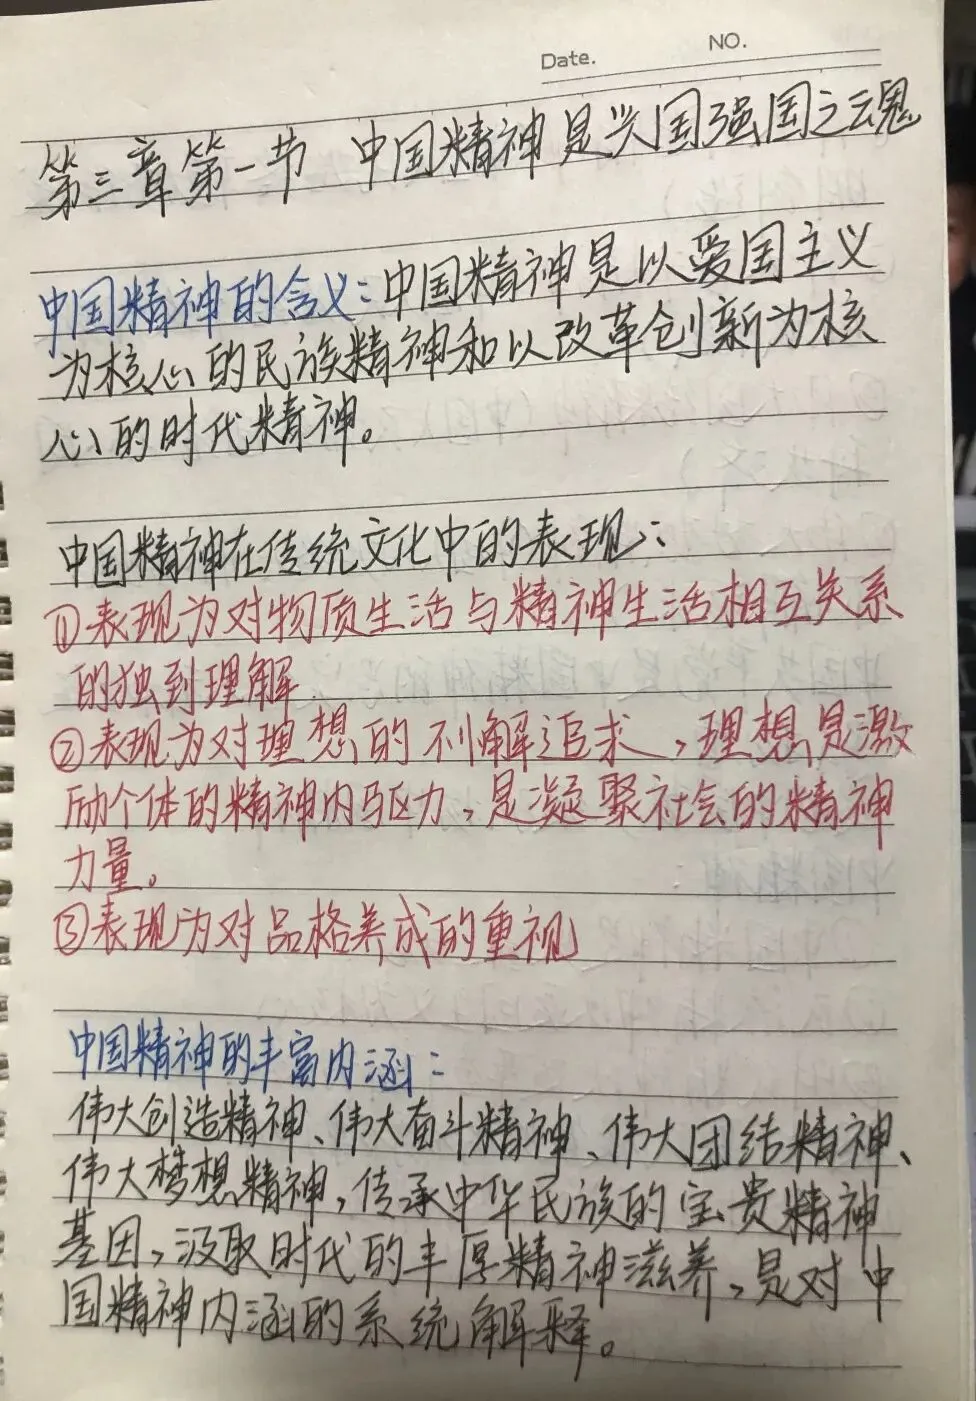 Date.
NO.
第三章第一节 中国精神是兴国强国之魂
中国精神的含义:中国精神是以爱国主义
为核心的民族精神和以改革创新为核
心的时代精神。
中国精神在传统文化中的表现:
①表现为对物质生活与精神生活相互关系
的独到理解
②表现为对理想的不懈追求,理想是激
励个体的精神内驱力,是凝聚社会的精神
力量。
③表现为对品格养成的重视
中国精神的丰富内涵:
伟大创造精神、伟大奋斗精神、伟大团结精神、
伟大梦想精神,传承中华民族的宝贵精神
基因,汲取时代的丰厚精神滋养,是对中
国精神内涵的系统解释。